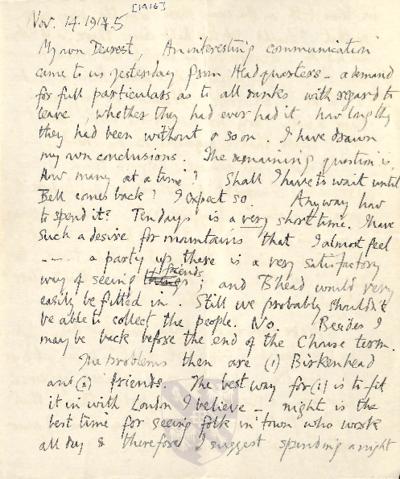 [1916]
Nov. 14. 1915
My own Dearest, An interesting communication
came to us yesterday from Headquarters – a demand
for full particulars as to all ranks with regard to
leave, whether they had ever had it, how long they
they had been without & so on. I have drawn
my own conclusions. The remaining question is
How many at a time? Shall I have to wait until
Bell comes back? I expect so. Anyway how
to spend it? Ten days is a very short time. I have
such a desire for mountains that I almost feel
--- a party up there is a very satisfactory
way of seeing friends; and B'head would very
easily be fitted in. Still we probably shouldn't
be able to collect the people. No. Besides I
may be back before the end of the Chouse term.
The problems then are (1) Birkenhead
and (2) friends. The best way for (1) is to fit
it in with London I believe – night is the
best time for seeing folk in town who work
all day & therefore I suggest spending a night